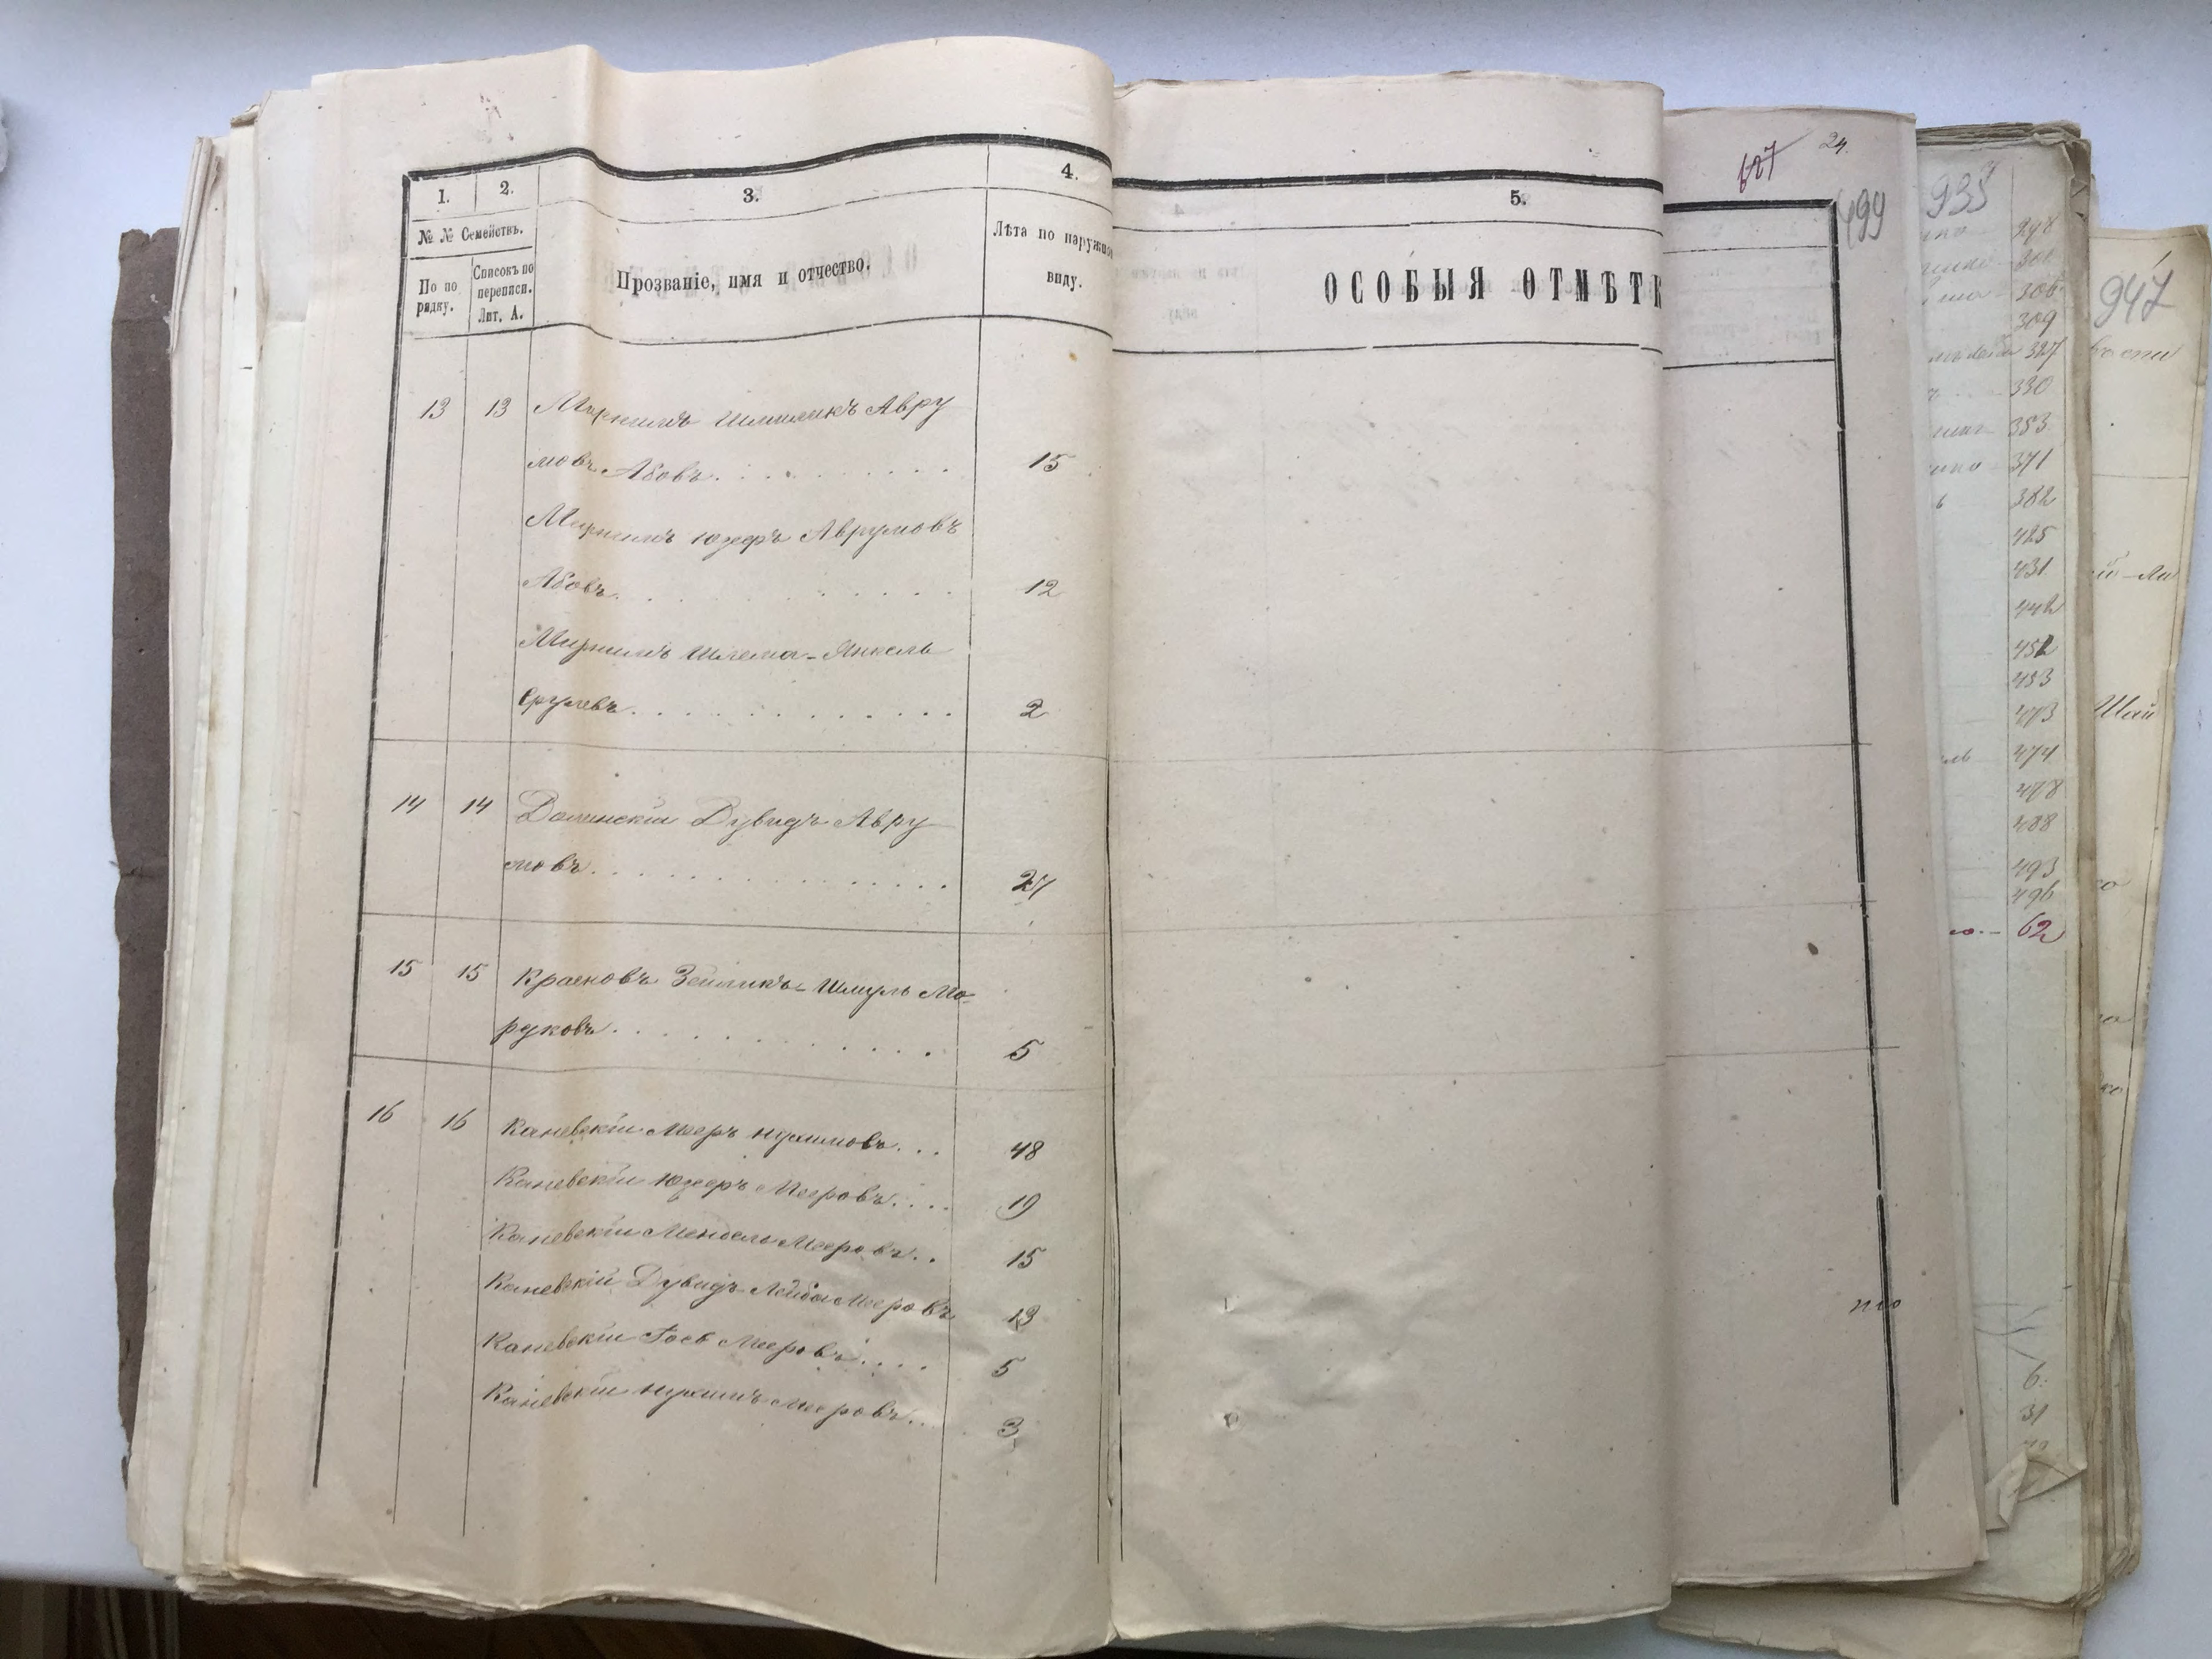 1.
2.
3.
4.
№ № Семействъ.
По по
рядку.
Списокъ по
переписи.
Лит. А.
Прозваніе, имя и отчество.
Лѣта по наружно
виду.
13 13 Шмиликъ Авру
мовъ Абовъ 15
Юдеръ Аврумовъ
Абовъ 12
Шлема-Янкель
Срулевъ 2
14 14 Долинскій Дувидъ Авру
мовъ 27
15 15 Красновъ Зейликъ-Шмуль Мо-
руховъ 5
16 16 Каневскій Мееръ Нухимовъ 48
Каневскій Юдеръ Мееровъ 19
Каневскій Мендель Мееровъ 15
Каневскій Дувидъ-Лейба Мееровъ 13
Каневскій Іосъ Мееровъ 5
Каневскій Нухимъ Мееровъ 3
5.
ОСОБЫЯ ОТМѢТК
627
24.
499
935
298
301
306
309
327
330
353
371
382
425
431
442
452
453
473
474
478
488
493
496
62
6.
31
947
Шай